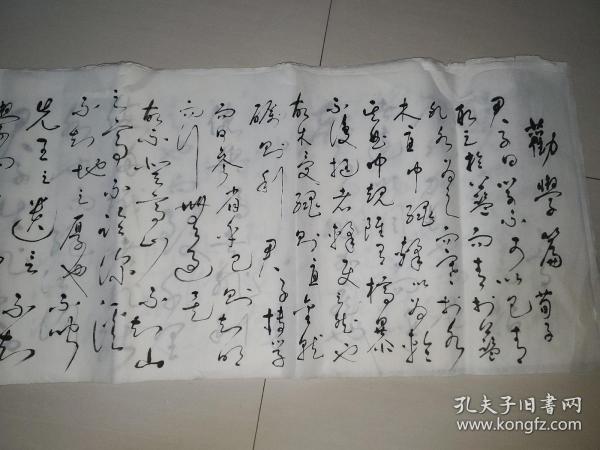 勸學篇 荀子
君子曰學不可以已青
取之於藍而青於藍
冰水為之而寒於水
木直中繩輮以為輪
其曲中規雖有槁暴
不復挺者輮使之然也
故木受繩則直金就
礪則利 君子博學
而日參省乎己則知明
而行無過矣
故不登高山不知山
之高不臨深溪
不知地之厚也不聞
先王之遺言不知
孔夫子旧书网
www.kongfz.com